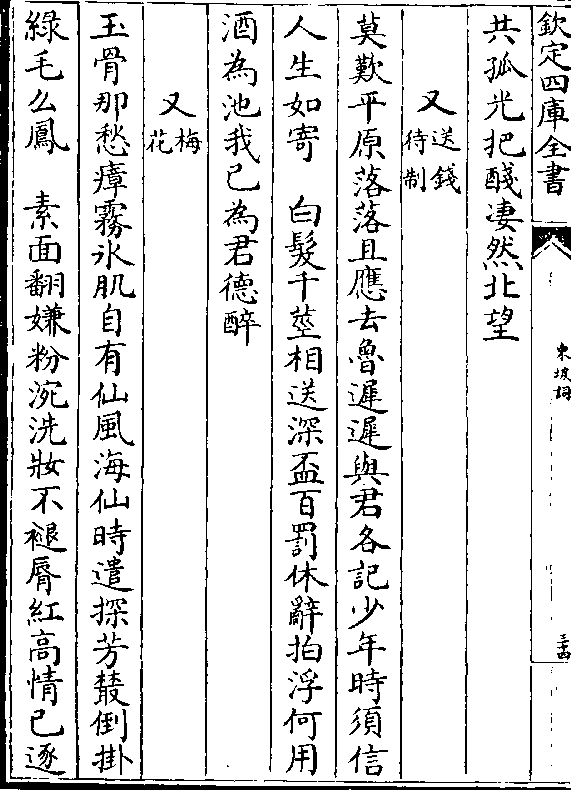 欽定四庫全書
東坡詞
三十四
共孤光把醆凄然北望
又送錢待制
莫歎平原落落且應去魯遲遲與君各記少年時須信
人生如寄　白髮千莖相送深盃百罰休辭拍浮何用
酒為池我已為君德醉
又梅花
玉骨那愁瘴霧氷肌自有仙風海仙時遣探芳藂倒掛
綠毛么鳳　素面翻嫌粉涴洗妝不褪脣紅高情已逐